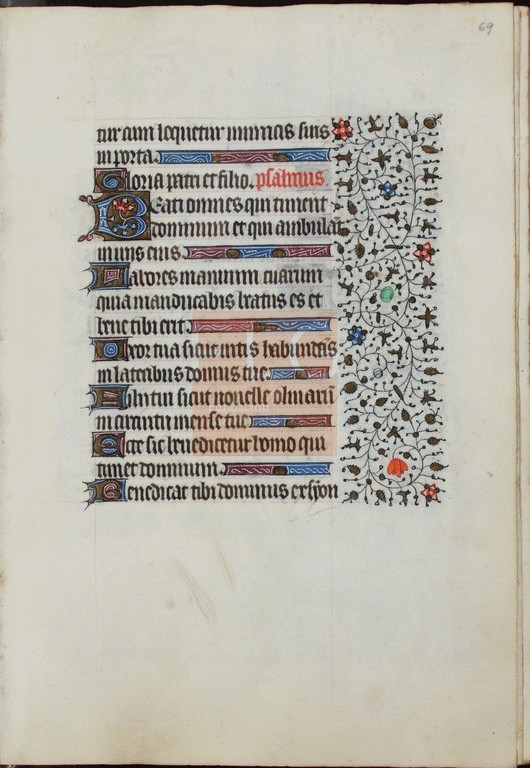 69
tur cum loquetur inimicis suis
in porta.
Gloria patri et filio. psalmus
Beati omnes qui timent
dominum et qui ambulāt
in viis eius.
Labores manuum tuarum
quia manducabis beatus es et
bene tibi erit.
Uxor tua sicut vitis habundās
in lateribus domus tue.
Filii tui sicut nouelle oliuarū
in circuitu mense tue.
Ecce sic benedicetur homo qui
timet dominum.
Benedicat tibi dominus ex syon